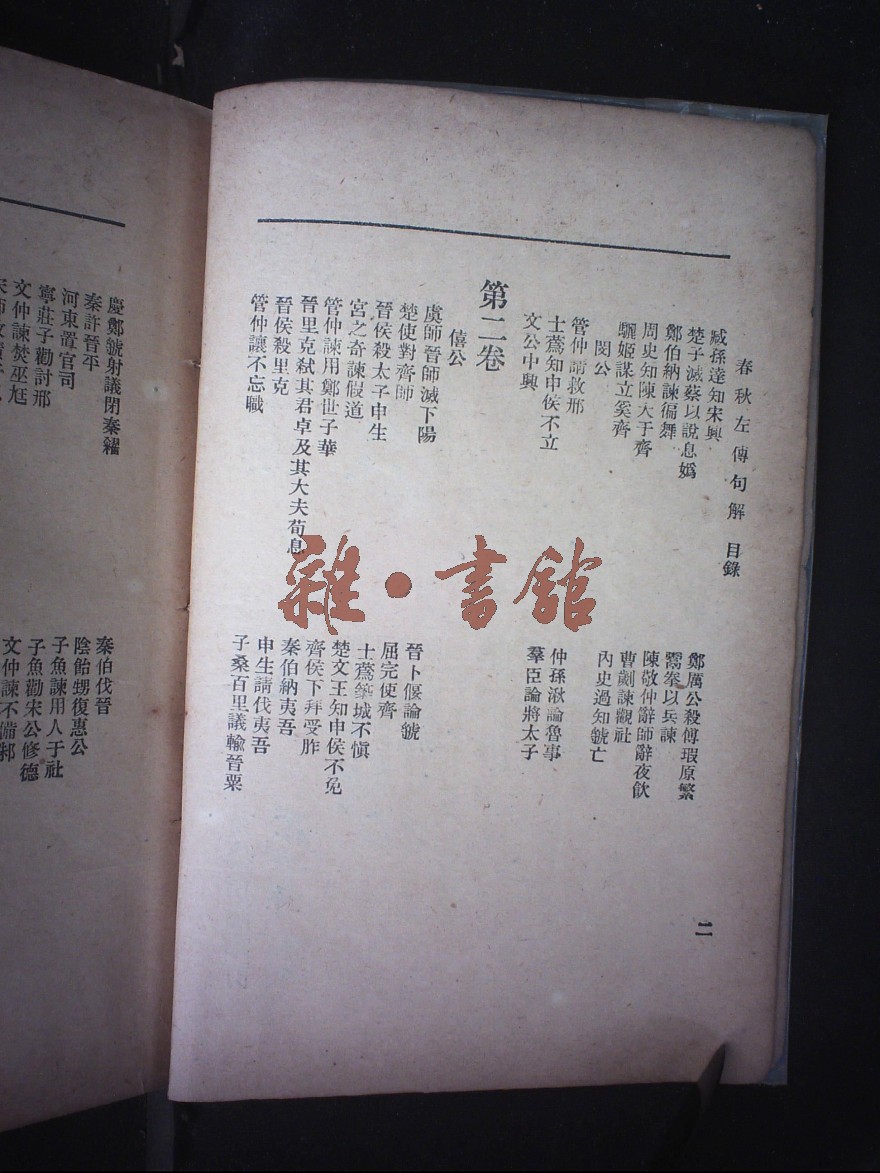 春秋左傳句解 目錄
二
臧孫達知宋興
鄭厲公殺傅瑕原繁
楚子滅蔡以說息媯
鬻拳以兵諫
鄭伯納諫徧舞
陳敬仲辭師辭夜飲
周史知陳大于齊
曹劌諫觀社
驪姬謀立奚齊
內史過知虢亡
閔公
管仲請救邢
仲孫湫論魯事
士蔿知申侯不立
羣臣論將太子
文公中興
第二卷
僖公
虞師晉師滅下陽
晉卜偃論虢
楚使對齊師
屈完使齊
晉侯殺太子申生
士蔿築城不愼
宮之奇諫假道
楚文王知申侯不免
管仲諫用鄭世子華
齊侯下拜受胙
晉里克弒其君卓及其大夫荀息
秦伯納夷吾
晉侯殺里克
申生請伐夷吾
管仲讓不忘職
子桑百里議輸晉粟
慶鄭虢射議閉秦糴
秦伯伐晉
秦許晉平
陰飴甥復惠公
河東置官司
子魚諫用人于社
寧莊子勸討邢
子魚勸宋公修德
文仲諫焚巫尫
文仲諫不備邾
雜·書館